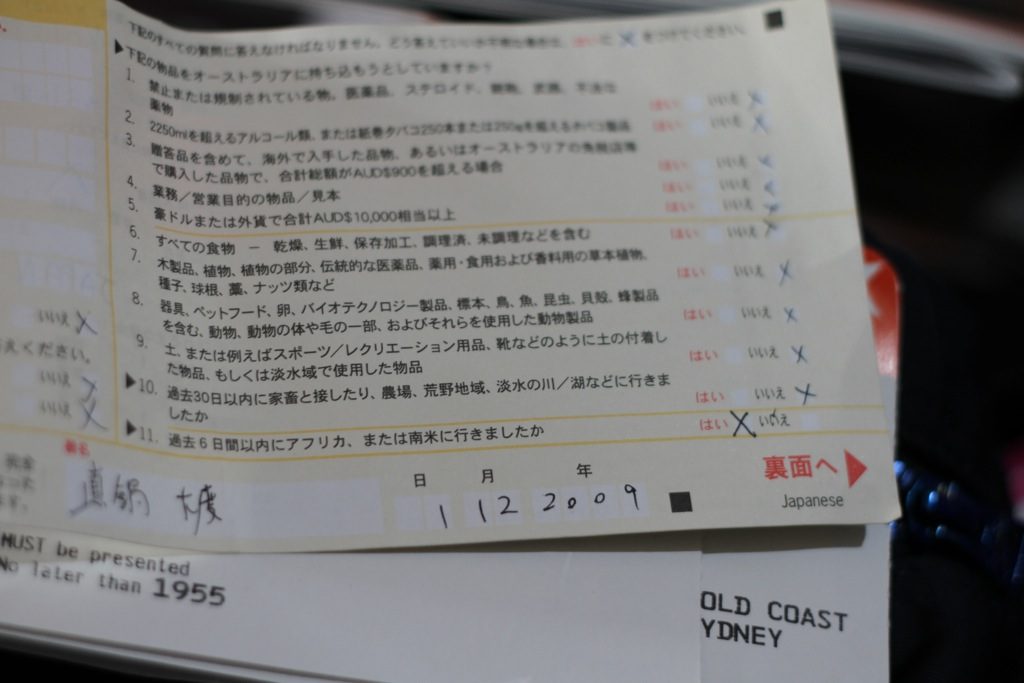 下記のすべての質問に答えなければなりません。どう答えていいか不明な場合は、はいに X をつけてください。
▶下記の物品をオーストラリアに持ち込もうとしていますか？
1. 禁止または規制されている物。医薬品、ステロイド、銃砲、武器、不法な
薬物 はい いいえ X
2. 2250mlを超えるアルコール類、または紙巻タバコ250本または250gを超えるタバコ製品 はい いいえ X
3. 贈答品を含めて、海外で入手した品物、あるいはオーストラリアの免税店等
で購入した品物で、合計総額がAUD$900を超える場合 はい いいえ X
4. 業務／営業目的の物品／見本 はい いいえ X
5. 豪ドルまたは外貨で合計AUD$10,000相当以上 はい いいえ X
6. すべての食物 － 乾燥、生鮮、保存加工、調理済、未調理などを含む はい いいえ X
7. 木製品、植物、植物の部分、伝統的な医薬品、薬用・食用および香料用の草本植物、
種子、球根、藁、ナッツ類など はい いいえ X
8. 器具、ペットフード、卵、バイオテクノロジー製品、標本、鳥、魚、昆虫、貝殻、蜂製品
を含む、動物、動物の体や毛の一部、およびそれらを使用した動物製品 はい いいえ X
9. 土、または例えばスポーツ／レクリエーション用品、靴などのように土の付着し
た物品、もしくは淡水域で使用した物品 はい いいえ X
▶10. 過去30日以内に家畜と接したり、農場、荒野地域、淡水の川／湖などに行きま
したか はい いいえ X
▶11. 過去6日間以内にアフリカ、または南米に行きましたか はい X いいえ
いいえ X
えください。
いいえ X
いいえ X
署名
真鍋 大度
日 月 年
1 12 2009
裏面へ
Japanese
MUST be presented
No later than 1955
OLD COAST
YDNEY